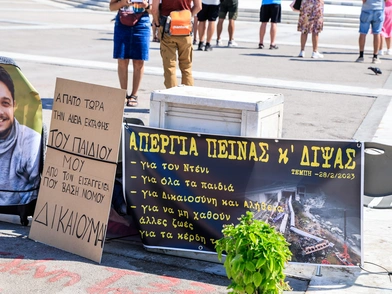 ΑΠΑΙΤΩ ΤΩΡΑ
ΤΗΝ ΑΔΕΙΑ ΕΚΤΑΦΗΣ
ΤΟΥ ΠΑΙΔΙΟΥ
ΜΟΥ
ΑΠΟ ΤΟΝ ΕΙΣΑΓΓΕΛΕΑ
ΠΟΥ ΒΑΣΗ ΝΟΜΟΥ
ΔΙΚΑΙΟΥΜΑΙ
ΑΠΕΡΓΙΑ ΠΕΙΝΑΣ κ' ΔΙΨΑΣ
ΤΕΜΠΗ -28/2/2023
- για τον Ντένι
- για όλα τα παιδιά
- για Δικαιοσύνη και Αλήθεια
- για να μη χαθούν
άλλες ζωές
- για τα κέρδη